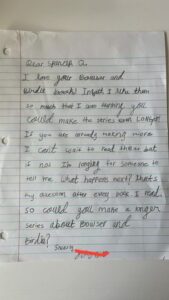 Dear Spencer Q.
I love your Bowser and
Birdie books! Infact I like them
so much that I was thinking you
could make the series even Longer.
If you are already making more
I can't wait to read them but
if not Im longing for someone to
tell me what happens next! that's
my question after every book I read.
so could you make a longer
series about Bowser and
Birdie?